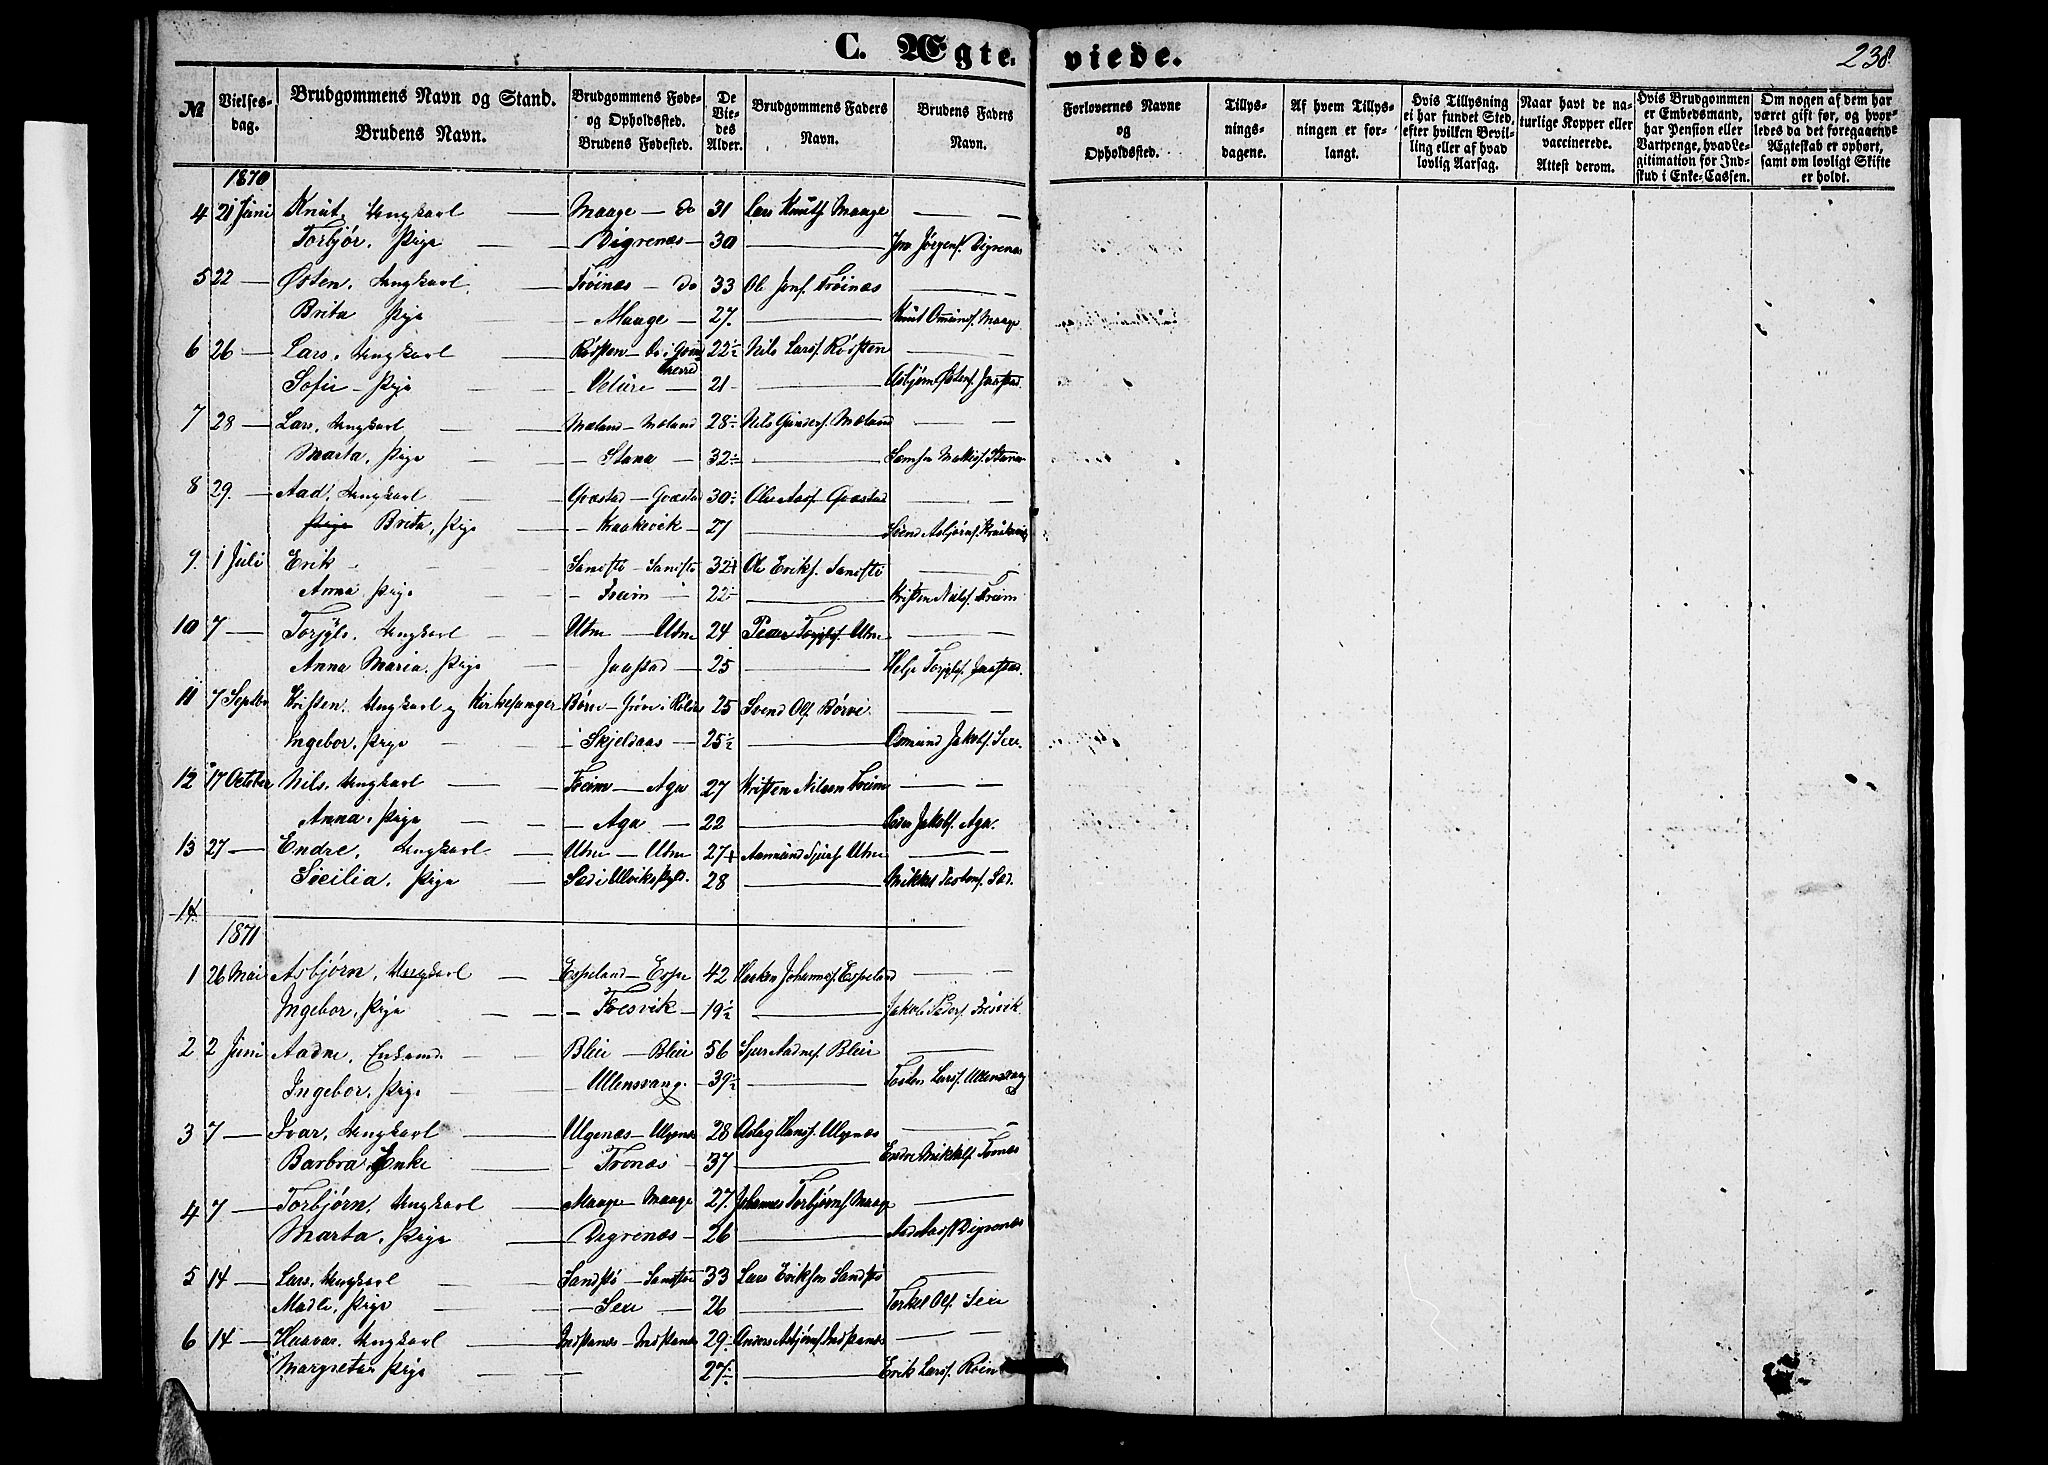 C. Ægteviede.
238
№ | Vielsesdag. | Brudgommens Navn og Stand. Brudens Navn. | Brudgommens Føde- og Opholdssted. Brudens Fødested. | De Viedes Alder. | Brudgommens Faders Navn. | Brudens Faders Navn. | Forlovernes Navne og Opholdssted. | Tillysningsdagene. | Af hvem Tillysningen er forlangt. | Hvis Tillysning ei har fundet Sted, efter hvilken Bevilling eller af hvad lovlig Aarsag. | Naar havt de naturlige Kopper eller vaccinerede. Attest derom. | Hvis Brudgommen er Embedsmand, har Pension eller Vartpenge, hvad Legitimation for Indskud i Enke-Cassen. | Om nogen af dem har været gift før, og hvorledes da det foregaaende Ægteskab er ophørt, samt om lovligt Skifte er holdt.
1870
4 21 Juni Knut, Ungkarl — Maage — do 31 Lars Knuts. Maage — —
Torbjør, Pige — — Digrenæs — 30 — Jon Jørgens. Digrenæs
5 22 — Østen, Ungkarl, — do 33 Ole Jons. — —
Brita Pige — — Maage — 27. — Knut Omunds. Maage
6 26 — Lars, Ungkarl — Rødsten — 22½ Nils Lars. Rødsten — —
Sofie — Pige — — Velure — 21 — Asbjørn Østens. Jaastad
7 28 — Lars, Ungkarl — — Mæland — Mæland 28 Nils Gunders. Mæland — —
Marta, Pige — — Stana — 32 —
8 29. — Aad, Ungkarl — Qvæstad — Qvæstad 30 Ole Aads. Qvæstad — —
Pige Brita, Pige — — Kraakevik — 27 — Svend Asbjørns. Kraakevik
9. 1 Juli Erik — — Saniste — Saniste 32 Ole Eriks. Saniste — —
Anna Pige — — Freim — 22 — Kristen Nils. Freim
10 7 — Torjyls, Ungkarl — — Utne — Utne 24 Peder Torjyls. Utne — —
Anna Maria, Pige — Jaastad — 25 — Helje Torjyls. Jaastad
11 7 Septbr Kristen, Ungkarl og Kirkesanger Børve — 25 Svend Ols. Børve — —
Ingebor, Pige — — Skjeldaas — 25½ — Osmund Jakobs. Sexe
12 17 October Nils, Ungkarl — — Freim — Aga 27 Kristen Nilsen Freim — —
Anna, Pige — — Aga — 22 — Peder Jakobs. Aga.
13 27 — Endre, Ungkarl — Utne — Utne 27 Aamund Sjurs. Utne — —
Secilia, Pige — Sæd i Ulviks Pgld. 28 — Mikkel Sæd.
14. —
1871
1 26 Mai Asbjørn, Ungkarl — Espeland — Espe 42 Haaken Johannes. Espeland — —
Ingebor, Pige — — Tresvik — 19½ — Jakob Peders. Tresvik
2 2 Juni Aadne, Enkemd. — — Bleie — Bleie 56 Sjur Aadnes. Bleie —
Ingebor, Pige — — Ullensvang. — 39½ — Torsten Lars. Ullensvang
3 7 — Ivar, Ungkarl — Ulgenæs — Ulgenæs 28 Aslag Hans. Ulgenæs —
Barbra, Enke — — Tronæs — 37 — Endre Mikkels. Tronæs
4 7 — Torbjørn, Ungkarl — Maage — Maage 27. Johannes Torbjørns. Maage —
Marta, Pige — Digrenæs — 26 — Aad Aads. Digrenæs
5 14 — Lars, Ungkarl — — Sandstø — Sandstø 33 Lars Eriksen Sandstø —
Madli, Pige — — Sexe — 26 — Torkel Ols. Sexe
6 14 — Haavar, Ungkarl — Indstanæs — Indstanæs 29 Anders Asbjørns. Indstanæs — —
Margreta, Pige — — 27 — Erik Lars.